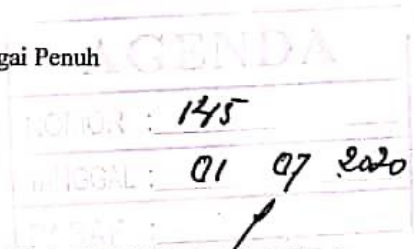 gai Penuh
AGENDA
NOMOR : 145
TANGGAL : 01 07 2020
PARAF :